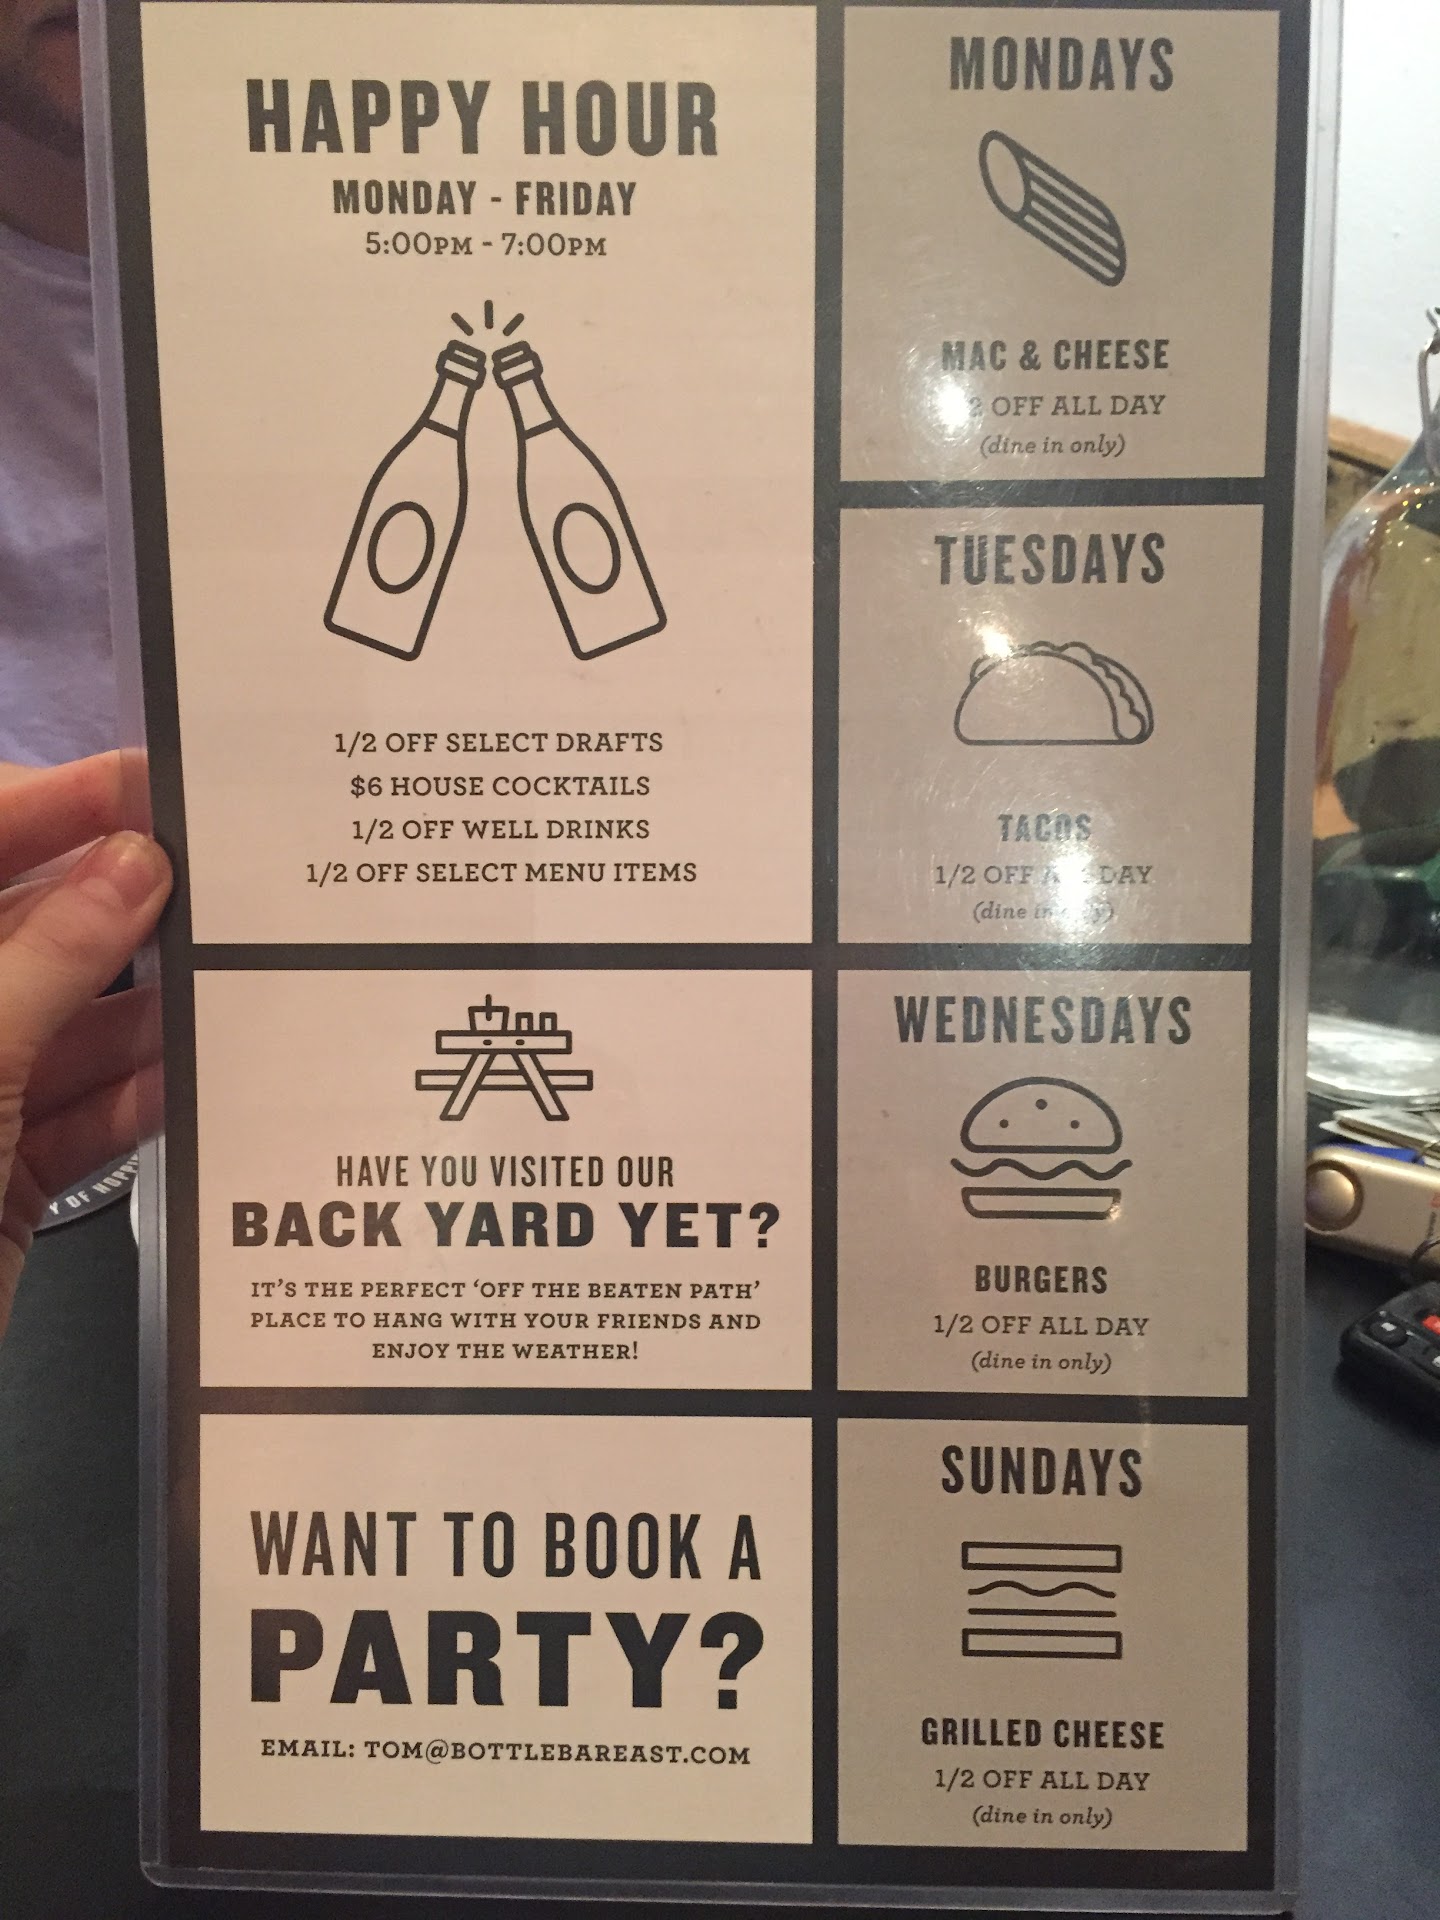 HAPPY HOUR
MONDAY - FRIDAY
5:00PM - 7:00PM
1/2 OFF SELECT DRAFTS
$6 HOUSE COCKTAILS
1/2 OFF WELL DRINKS
1/2 OFF SELECT MENU ITEMS
HAVE YOU VISITED OUR
BACK YARD YET?
IT'S THE PERFECT 'OFF THE BEATEN PATH'
PLACE TO HANG WITH YOUR FRIENDS AND
ENJOY THE WEATHER!
WANT TO BOOK A
PARTY?
EMAIL: TOM@BOTTLEBAREAST.COM
MONDAYS
MAC & CHEESE
OFF ALL DAY
(dine in only)
TUESDAYS
TACOS
1/2 OFF ALL DAY
(dine in only)
WEDNESDAYS
BURGERS
1/2 OFF ALL DAY
(dine in only)
SUNDAYS
GRILLED CHEESE
1/2 OFF ALL DAY
(dine in only)
Y OF